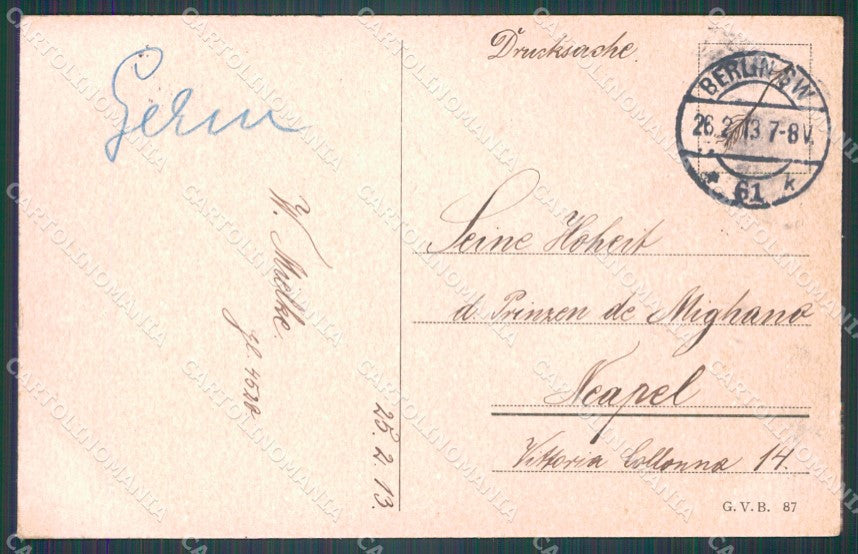 Germ
W. Mielke.
25. 2. 13.
Drucksache.
BERLIN SW
26.2.13 7-8V.
* 61 k
Seine Hoheit
d. Prinzen de Mighano
Neapel
Vittoria Collonna 14.
G. V. B. 87
CARTOLINOMANIA